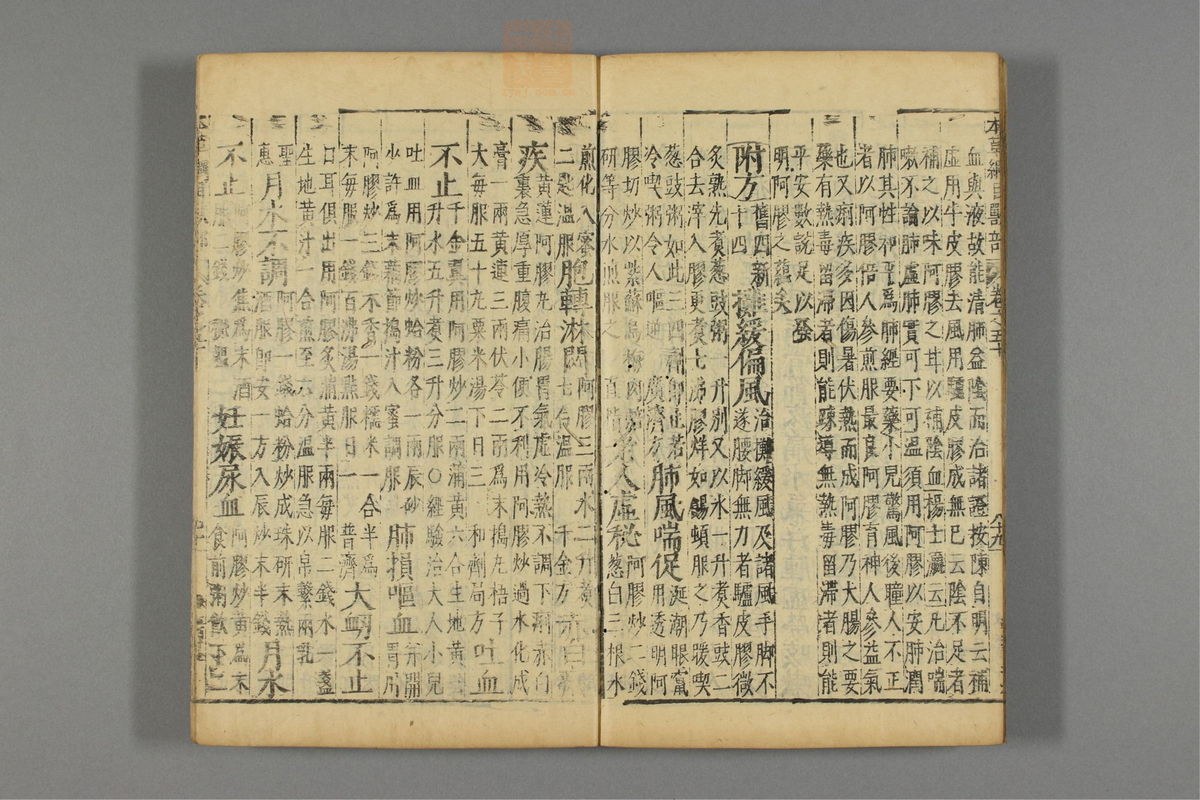 本草綱目獸部 卷之五十
血與液故能清肺益陰而治諸證按陳自明云補
虛用牛皮膠去風用驢皮膠成無已云陰不足者
補之以味阿膠之甘以補陰血楊士瀛云凡治喘
嗽不論肺虛肺實可下可溫須用阿膠以安肺潤
肺其性和平爲肺經要藥小兒驚風後瞳人不正
者以阿膠倍人參煎服最良阿膠育神人參益氣
也又痢疾多因傷暑伏熱而成阿膠乃大腸之要
藥有熱毒留滯者則能疎導無熱毒留滯者則能
平安數說足以發
明阿膠之蘊矣
附方舊四新十四 攤緩偏風治攤緩風及諸風手脚不遂腰脚無力者驢皮膠微
炙熟先煮葱豉粥一升別又以水一升煮香豉二
合去滓入膠更煮七沸膠烊如餳頓服之乃暖喫
葱豉粥如此三四劑即止若
冷喫粥令人嘔逆 廣濟方 肺風喘促涎潮眼竄用透明阿
膠切炒以紫蘇烏梅肉 老人虛秘阿膠炒二錢葱白三根水
研等分水煎服之 直
煎化入蜜二匙溫服 胞轉淋閟阿膠三兩水二升煮七合溫服 千金方
疾黃連阿膠丸治腸胃氣虛冷熱不調下痢赤白
裏急厚重腹痛小便不利用阿膠炒過水化成
膏一兩黃連三兩茯苓二兩爲末搗丸梧子
大每服五十丸粟米湯下日三 和劑局方 吐血
不止千金翼用阿膠炒二兩蒲黃六合生地黃三
升水五升煮三升分服○經驗治大人小兒
吐血用阿膠炒蛤粉各一兩辰砂
少許爲末藕節搗汁入蜜調服 肺損嘔血并開胃用
阿膠炒三錢木香一錢糯米一合半爲
末每服一錢百沸湯點服日一 普濟 大衄不止
口耳俱出用阿膠炙蒲黃半兩每服二錢水一盞
生地黃汁一合煎至六分溫服急以帛繫兩乳
聖惠 月水不調阿膠一錢蛤粉炒成珠研末熱酒服即安一方入辰砂末半錢 月水
不止阿膠炒焦爲末酒 妊娠尿血阿膠炒黃爲末食前粥飲下二